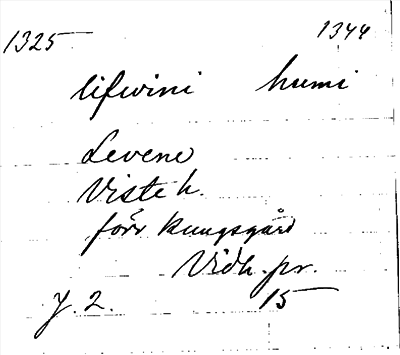 1325 1344
lifvini humi
Levene
Viste h.
förr Kungsgård
Vidh. pr.
J. 2. 15